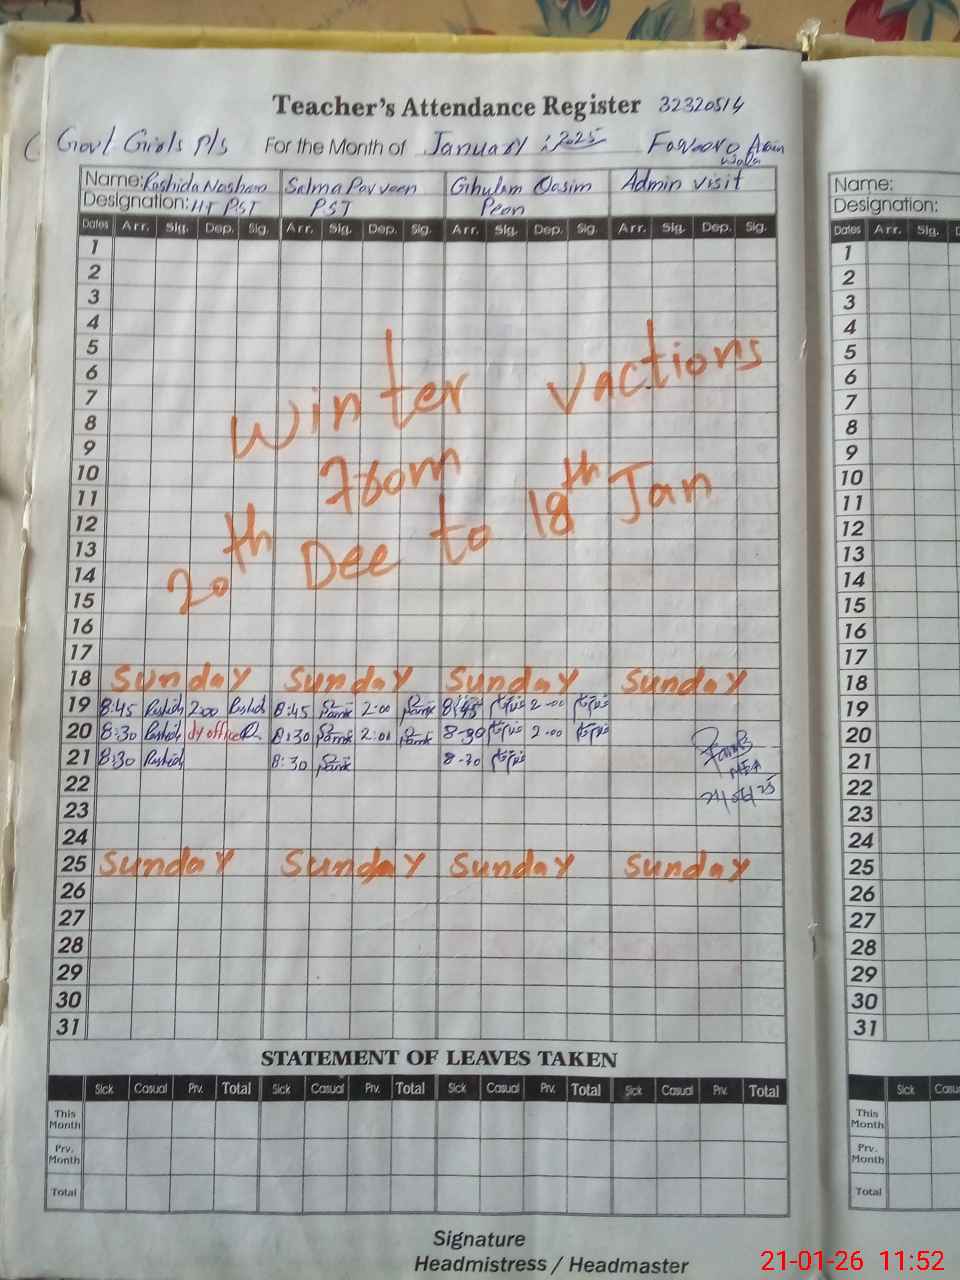 Teacher's Attendance Register 32320514
Govt Girls P/S For the Month of January 2025 Farooro Arain wala
Name: Rashida Nasham Salma Parveen Ghulam Qasim Admin visit
Designation: HT PST PST Peon
Dates Arr. Sig. Dep. Sig. Arr. Sig. Dep. Sig. Arr. Sig. Dep. Sig. Arr. Sig. Dep. Sig.
1
2
3
4
5
6
7
8
9
10
11
12
13
14
15
16
17
Winter Vactions
From
20th Dec to 18th Jan
18 Sunday Sunday Sunday Sunday
19 8:45 Rashid 2:00 Rashid 8:45 2:00 8:45 2-00
20 8:30 Rashid dy office 8:30 2:00 8-30 2-00
21 8:30 Rashid 8:30 8-30
MEA
22
23
24
25 Sunday Sunday Sunday Sunday
26
27
28
29
30
31
STATEMENT OF LEAVES TAKEN
Sick Casual Prv. Total Sick Casual Prv. Total Sick Casual Prv. Total Sick Casual Prv. Total
This Month
Prv. Month
Total
Signature
Headmistress / Headmaster
Name:
Designation:
Dates Arr. Sig.
1
2
3
4
5
6
7
8
9
10
11
12
13
14
15
16
17
18
19
20
21
22
23
24
25
26
27
28
29
30
31
Sick
This Month
Prv. Month
Total
21-01-26 11:52